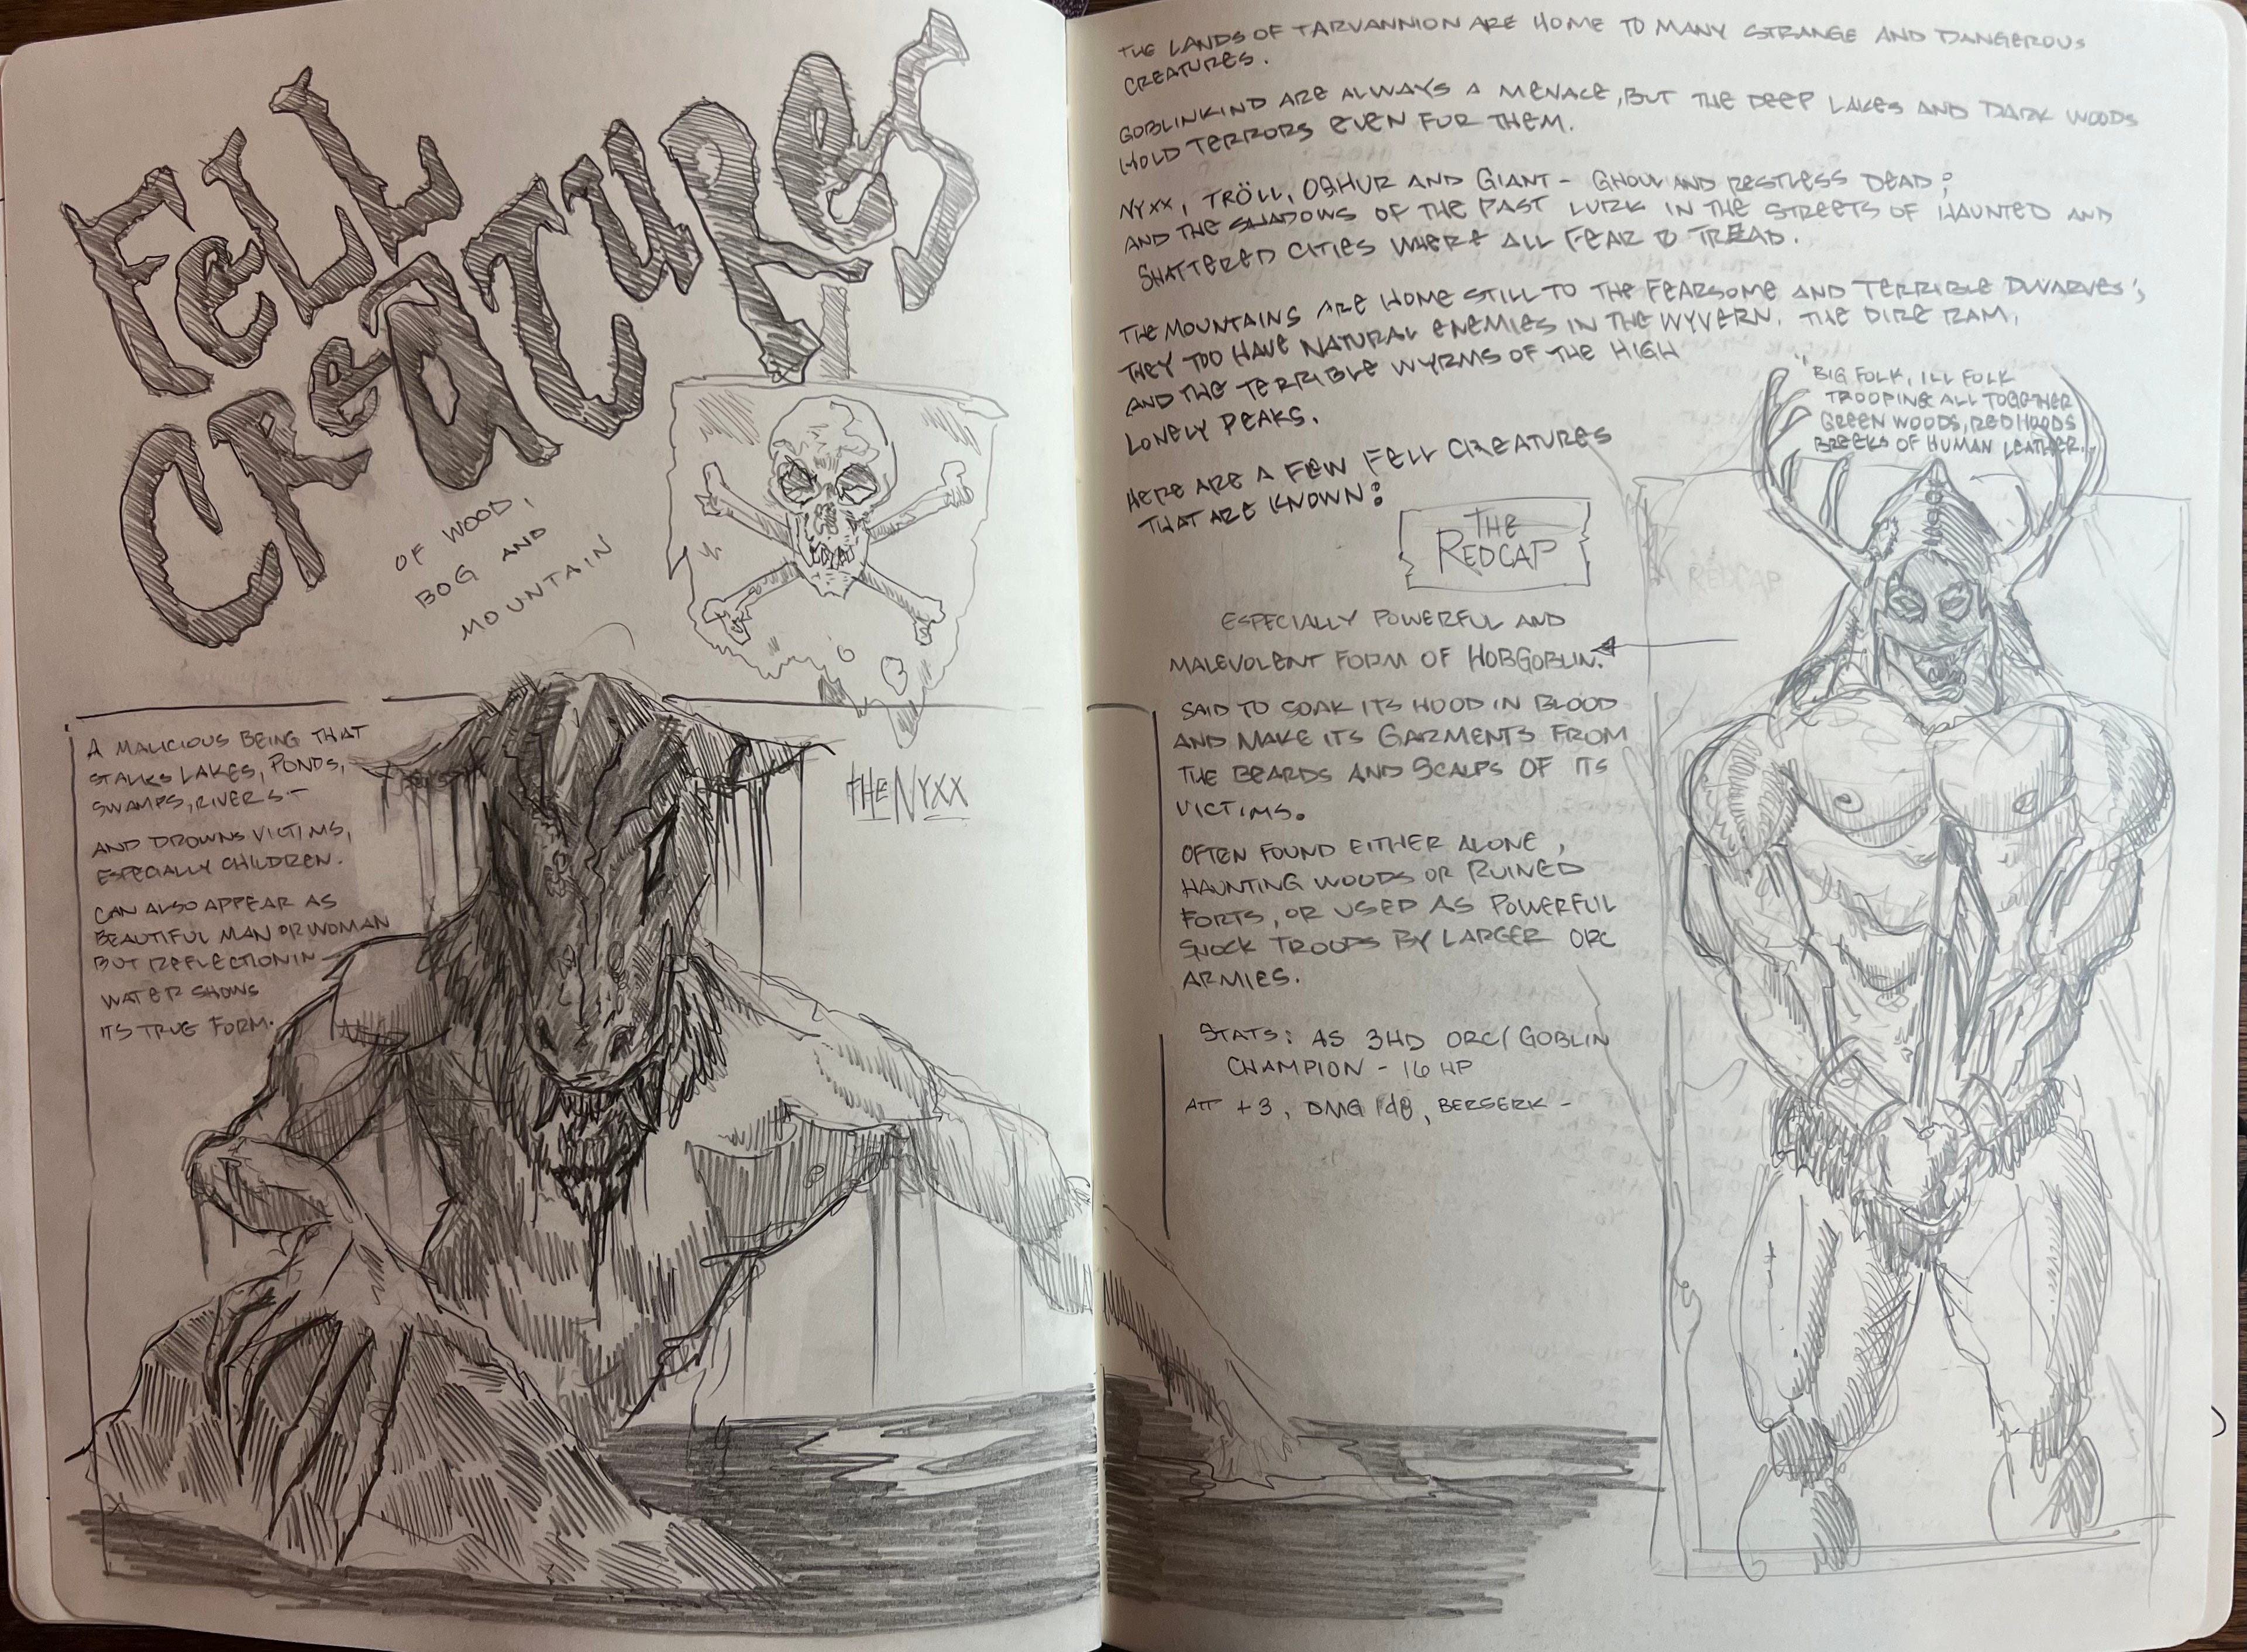 FELL
CREATURES
OF WOOD,
BOG AND
MOUNTAIN
A MALICIOUS BEING THAT
STALKS LAKES, PONDS,
SWAMPS, RIVERS -
AND DROWNS VICTIMS,
ESPECIALLY CHILDREN.
CAN ALSO APPEAR AS
BEAUTIFUL MAN OR WOMAN
BUT REFLECTION IN
WATER SHOWS
ITS TRUE FORM.
THE NYXX
THE LANDS OF TARVANNION ARE HOME TO MANY STRANGE AND DANGEROUS
CREATURES.
GOBLINKIND ARE ALWAYS A MENACE, BUT THE DEEP LAKES AND DARK WOODS
HOLD TERRORS EVEN FOR THEM.
NYXX, TRÖLL, OGHUR AND GIANT - GHOUL AND RESTLESS DEAD;
AND THE SHADOWS OF THE PAST LURK IN THE STREETS OF HAUNTED AND
SHATTERED CITIES WHERE ALL FEAR TO TREAD.
THE MOUNTAINS ARE HOME STILL TO THE FEARSOME AND TERRIBLE DWARVES;
THEY TOO HAVE NATURAL ENEMIES IN THE WYVERN, THE DIRE RAM,
AND THE TERRIBLE WYRMS OF THE HIGH
LONELY PEAKS.
HERE ARE A FEW FELL CREATURES
THAT ARE KNOWN:
"BIG FOLK, ILL FOLK
TROOPING ALL TOGETHER
GREEN WOODS, RED HOODS
BREEKS OF HUMAN LEATHER..
THE
REDCAP
REDCAP
ESPECIALLY POWERFUL AND
MALEVOLENT FORM OF HOBGOBLIN.
SAID TO SOAK ITS HOOD IN BLOOD
AND MAKE ITS GARMENTS FROM
THE BEARDS AND SCALPS OF ITS
VICTIMS.
OFTEN FOUND EITHER ALONE,
HAUNTING WOODS OR RUINED
FORTS, OR USED AS POWERFUL
SHOCK TROOPS BY LARGER ORC
ARMIES.
STATS: AS 3HD ORC/GOBLIN
CHAMPION - 16 HP
ATT +3, DMG 1d8, BERSERK -